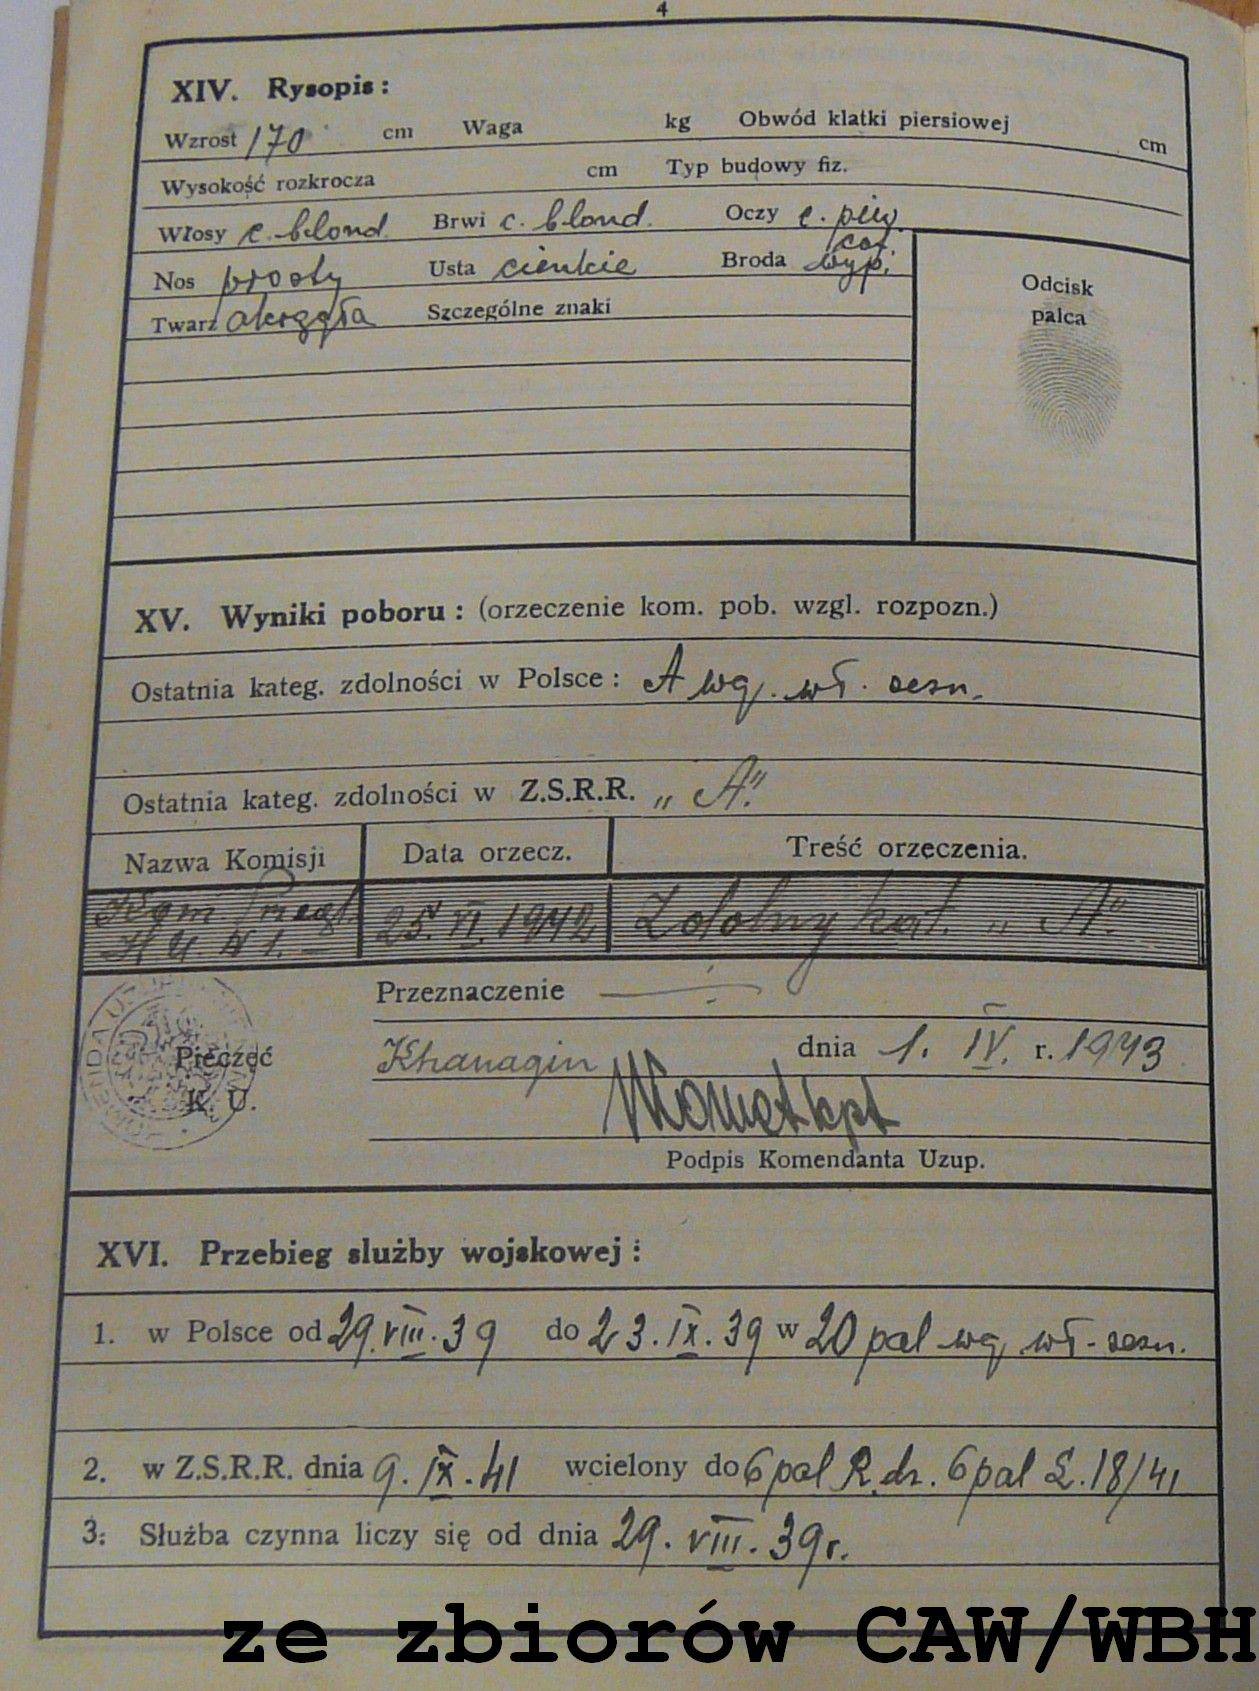 4
XIV. Rysopis :
Wzrost 170 cm Waga kg Obwód klatki piersiowej cm
Wysokość rozkrocza cm Typ budowy fiz.
Włosy c. blond. Brwi c. blond. Oczy c. piw.
Nos prosty Usta cienkie Broda cof. wyp.
Twarz okrągła Szczególne znaki
Odcisk
palca
XV. Wyniki poboru : (orzeczenie kom. pob. wzgl. rozpozn.)
Ostatnia kateg. zdolności w Polsce : A wg. wł. zezn.
Ostatnia kateg. zdolności w Z.S.R.R. „A."
Nazwa Komisji Data orzecz. Treść orzeczenia.
Kom. Przegl. 25. VI. 1942 Zdolny kat. „A."
K. U. N 1. –
Przeznaczenie
Pieczęć
K. U.
Khanaqin dnia 1. IV. r. 1943
kpt
Podpis Komendanta Uzup.
XVI. Przebieg służby wojskowej :
1. w Polsce od 29. VIII. 39 do 23. IX. 39 w 20 pal wg. wł. zezn.
2. w Z.S.R.R. dnia 9. IX. 41 wcielony do 6 pal R. dz. 6 pal L. 18/41
3. Służba czynna liczy się od dnia 29. VIII. 39 r.
ze zbiorów CAW/WBH